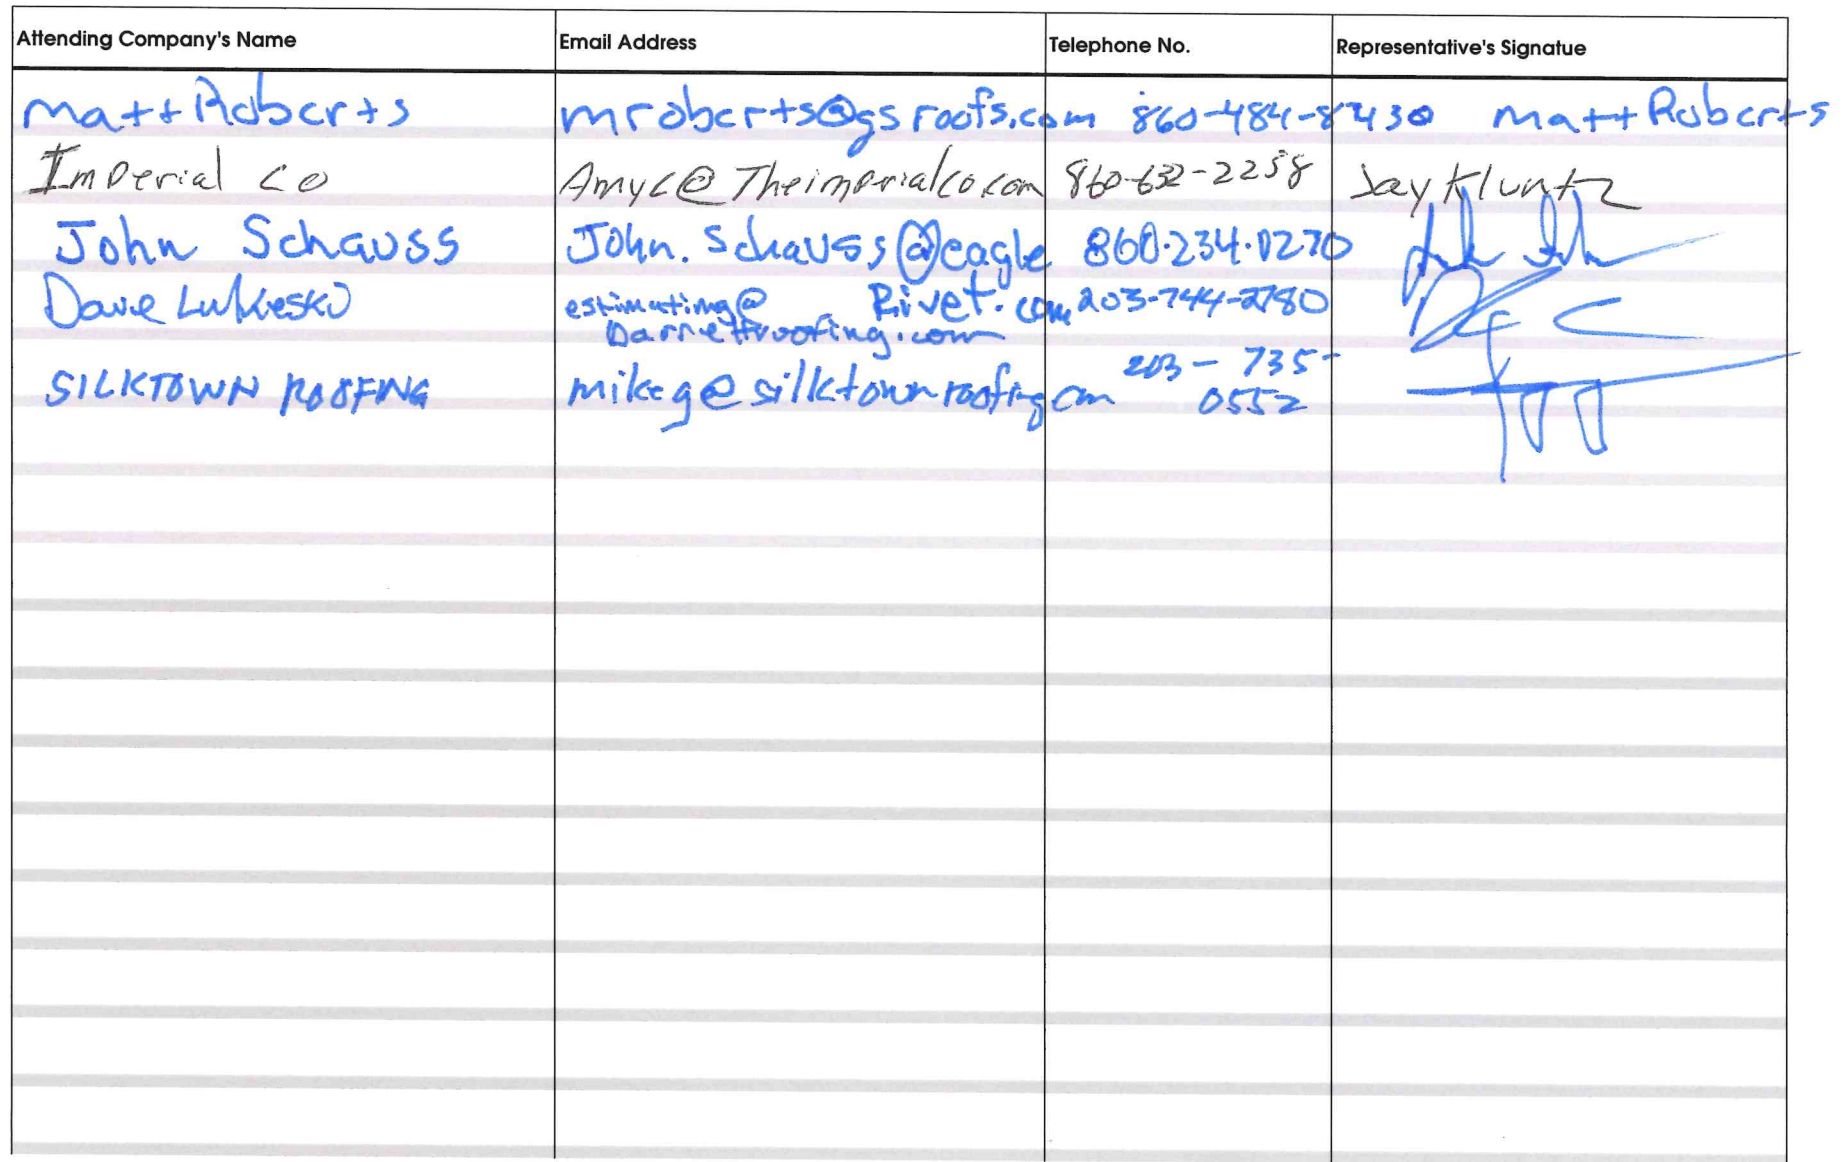 Attending Company's Name Email Address Telephone No. Representative's Signatue
Matt Roberts mroberts@gsroofs.com 860-484-8430 Matt Roberts
Imperial Co Amyc@Theimperialco.com 860-632-2258 Jay Kluntz
John Schauss John.Schauss@eagle 860.234.0270
Rivet.com
Dave estimating@ 203-744-2780
barrettroofing.com
SILKTOWN ROOFING mikeg@silktownroofing.com 203-735-
0552